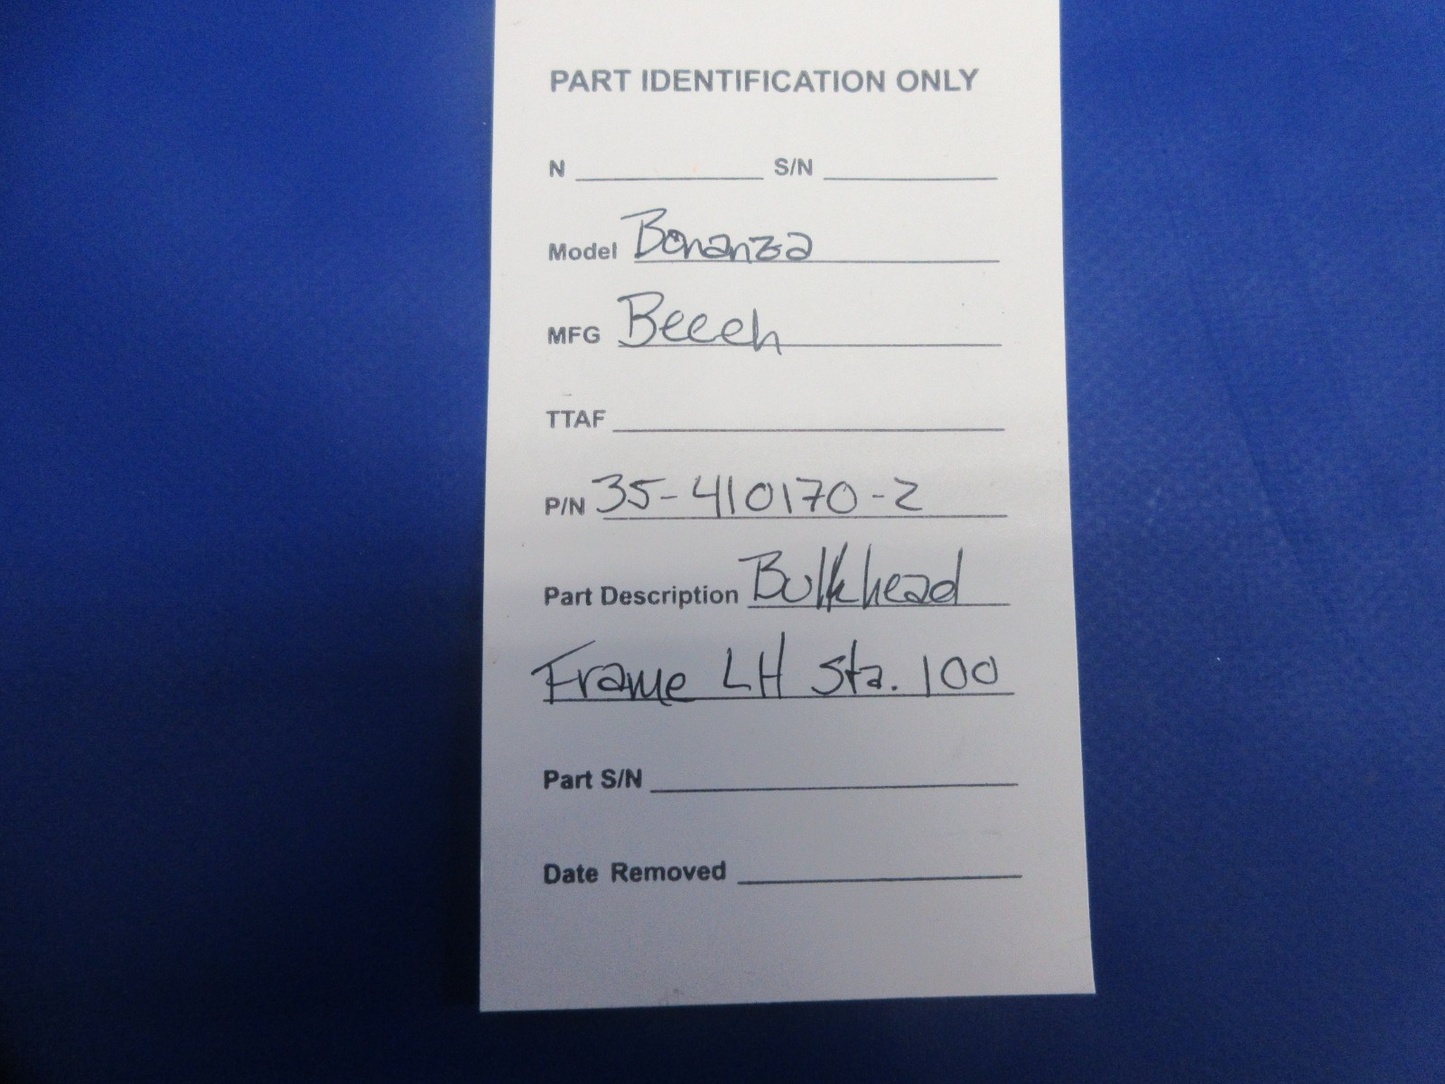 PART IDENTIFICATION ONLY
N S/N
Model Bonanza
MFG Beech
TTAF
P/N 35-410170-2
Part Description Bulkhead
Frame LH Sta. 100
Part S/N
Date Removed